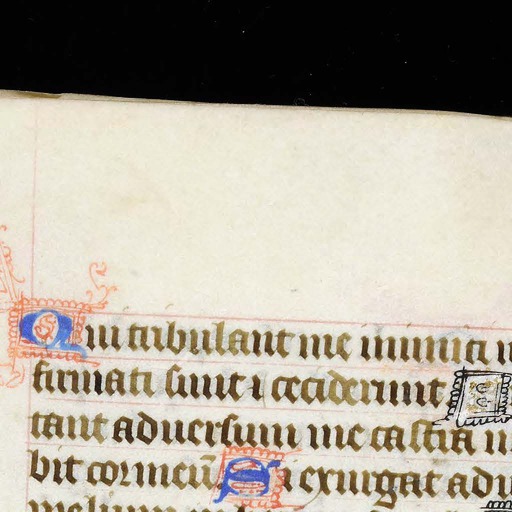 Qui tribulant me inimici
firmati sunt & ceciderunt
tant aduersum me castra
bit cor meū. Si exurgat adu